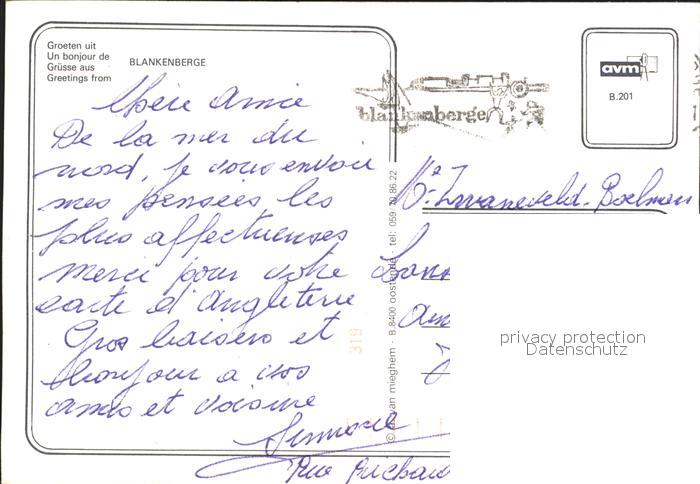 Groeten uit
Un bonjour de
Grüsse aus
Greetings from
BLANKENBERGE
Chère Amie
De la mer du
nord, je vous envoie
mes pensées les
plus affectueuses
merci pour votre
carte d'Angleterre
Gros baisers et
bonjour a vos
amis et voisine
Rue
blankenberge
avm
B.201
Zwaneveld-Boelman
van mieghem - B.8400 oostende - tel: 059
319
privacy protection
Datenschutz